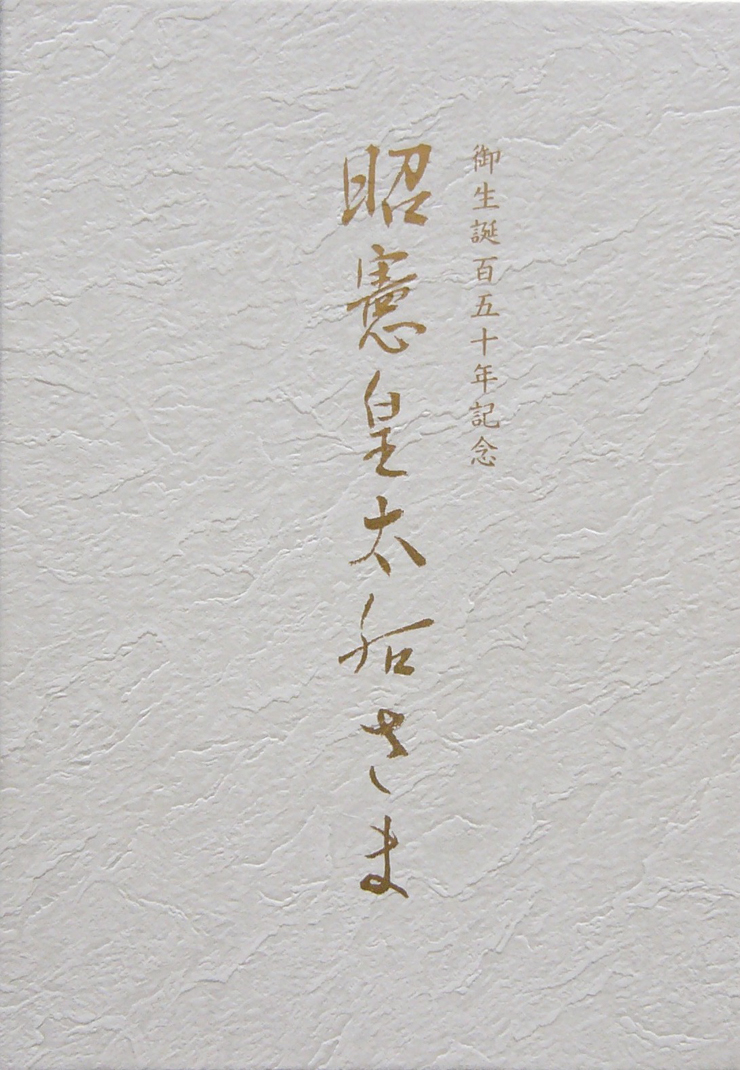 御生誕百五十年記念
昭憲皇太后さま